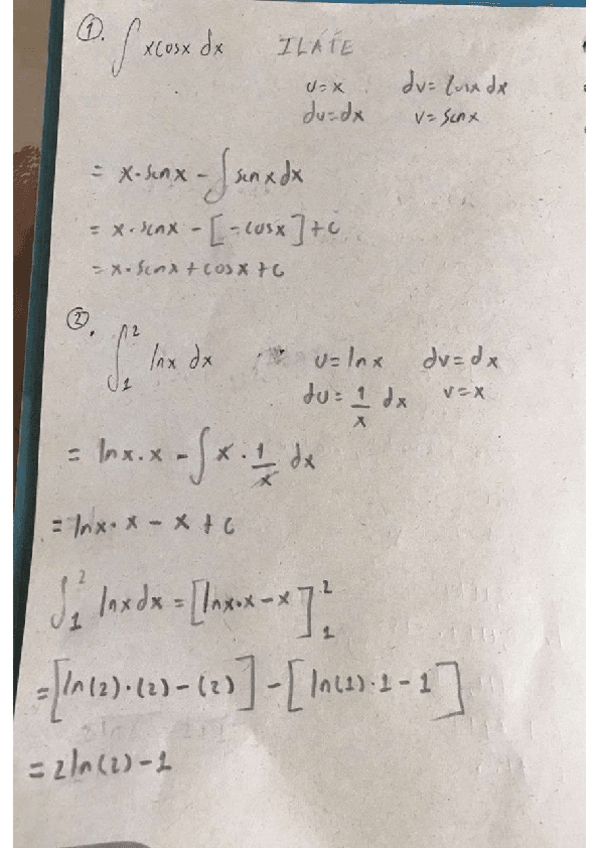 ①. ∫ xcosx dx ILATE
u=x dv=cosx dx
du=dx v=senx
= x·senx - ∫ senx dx
= x·senx - [-cosx]+c
= x·senx+cosx+c
②. ∫₁² lnx dx u=lnx dv=dx
du=1/x dx v=x
= lnx·x - ∫ x·1/x dx
= lnx·x - x + c
∫₁² lnxdx = [lnx·x-x]₁²
= [ln(2)·(2)-(2)] - [ln(1)·1-1]
= 2ln(2)-1